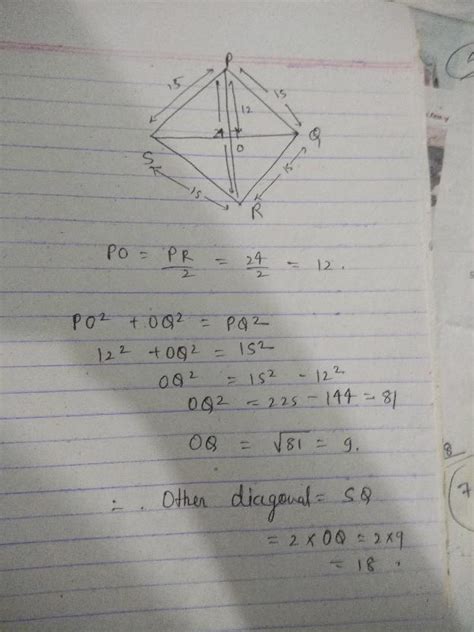 P
15
15
12
24
S
O
Q
15
15
R
PO = PR/2 = 24/2 = 12.
PO² + OQ² = PQ²
12² + OQ² = 15²
OQ² = 15² - 12²
OQ² = 225 - 144 = 81
OQ = √81 = 9.
∴ Other diagonal = SQ
= 2 × OQ = 2×9
= 18.
8
7